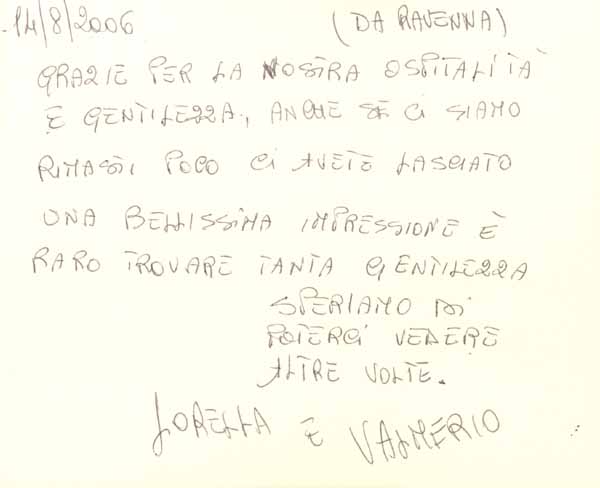 14/8/2006 (DA RAVENNA)
GRAZIE PER LA NOSTRA OSPITALITÀ
E GENTILEZZA, ANCHE SE CI SIAMO
RIMASTI POCO CI AVETE LASCIATO
UNA BELLISSIMA IMPRESSIONE È
RARO TROVARE TANTA GENTILEZZA
SPERIAMO DI
POTERCI VEDERE
ALTRE VOLTE.
LORELLA E VALMERIO